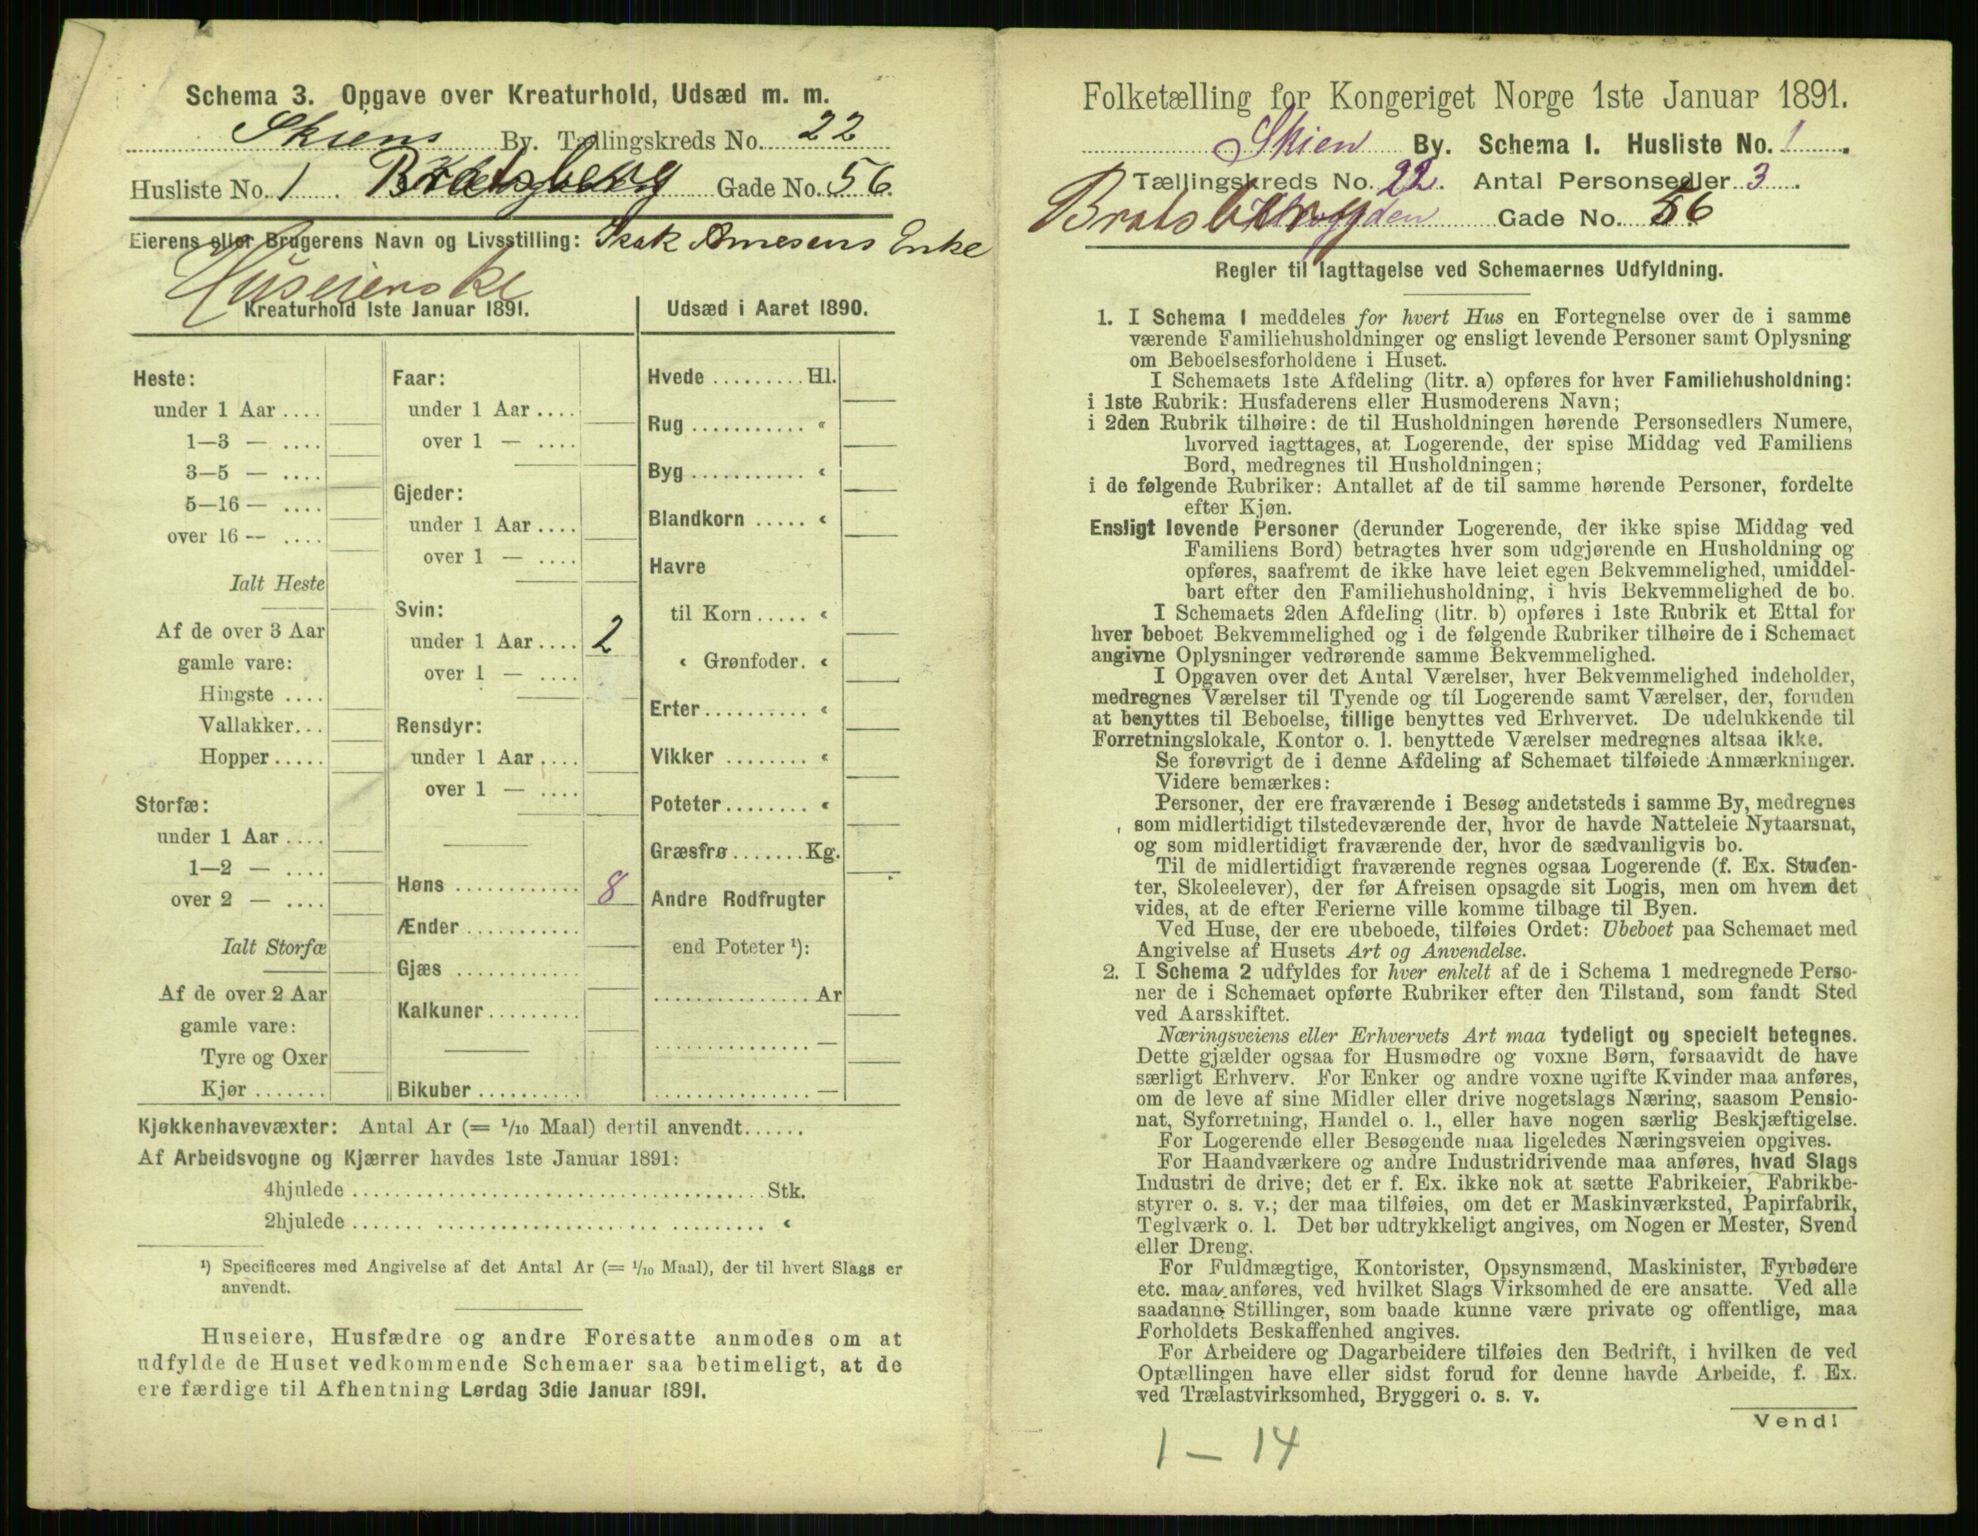 Schema 3. Opgave over Kreaturhold, Udsæd m. m.
Skiens By. Tællingskreds No. 22
Husliste No. 1. Bratsberg Gade No. 56
Eierens eller Brugerens Navn og Livsstilling: Isak Arnesens Enke
Huseierske
Kreaturhold 1ste Januar 1891.
Heste:
under 1 Aar ....
1—3 — ....
3—5 — ....
5—16 — ....
over 16 — ....
Ialt Heste
Af de over 3 Aar
gamle vare:
Hingste ....
Vallakker...
Hopper.....
Storfæ:
under 1 Aar ....
1—2 — ....
over 2 — ....
Ialt Storfæ
Af de over 2 Aar
gamle vare:
Tyre og Oxer
Kjør.......
Faar:
under 1 Aar ....
over 1 — ....
Gjeder:
under 1 Aar ....
over 1 — ....
Svin:
under 1 Aar.... 2
over 1 — ....
Rensdyr:
under 1 Aar ....
over 1 — ....
Høns ............ 8
Ænder ...........
Gjæs ............
Kalkuner.........
Bikuber ..........
Udsæd i Aaret 1890.
Hvede ......... Hl.
Rug ........... «
Byg ........... «
Blandkorn ..... «
Havre
til Korn ..... «
« Grønfoder. «
Erter.......... «
Vikker ........ «
Poteter........ «
Græsfrø.......Kg.
Andre Rodfrugter
end Poteter ¹):
............... Ar
............... —
............... —
Kjøkkenhavevæxter: Antal Ar (= 1/10 Maal) dertil anvendt......
Af Arbeidsvogne og Kjærrer havdes 1ste Januar 1891:
4hjulede ........................................ Stk.
2hjulede ........................................ «
¹) Specificeres med Angivelse af det Antal Ar (= 1/10 Maal), der til hvert Slags er
anvendt.
Huseiere, Husfædre og andre Foresatte anmodes om at
udfylde de Huset vedkommende Schemaer saa betimeligt, at de
ere færdige til Afhentning Lørdag 3die Januar 1891.
Folketælling for Kongeriget Norge 1ste Januar 1891.
Skien By. Schema I. Husliste No. 1.
Tællingskreds No. 22. Antal Personsedler 3.
Bratsberg Gade No. 56
Regler til Iagttagelse ved Schemaernes Udfyldning.
1. I Schema 1 meddeles for hvert Hus en Fortegnelse over de i samme
værende Familiehusholdninger og ensligt levende Personer samt Oplysning
om Beboelsesforholdene i Huset.
I Schemaets 1ste Afdeling (litr. a) opføres for hver Familiehusholdning:
i 1ste Rubrik: Husfaderens eller Husmoderens Navn;
i 2den Rubrik tilhøire: de til Husholdningen hørende Personsedlers Numere,
hvorved iagttages, at Logerende, der spise Middag ved Familiens
Bord, medregnes til Husholdningen;
i de følgende Rubriker: Antallet af de til samme hørende Personer, fordelte
efter Kjøn.
Ensligt levende Personer (derunder Logerende, der ikke spise Middag ved
Familiens Bord) betragtes hver som udgjørende en Husholdning og
opføres, saafremt de ikke have leiet egen Bekvemmelighed, umiddel-
bart efter den Familiehusholdning, i hvis Bekvemmelighed de bo.
I Schemaets 2den Afdeling (litr. b) opføres i 1ste Rubrik et Ettal for
hver beboet Bekvemmelighed og i de følgende Rubriker tilhøire de i Schemaet
angivne Oplysninger vedrørende samme Bekvemmelighed.
I Opgaven over det Antal Værelser, hver Bekvemmelighed indeholder,
medregnes Værelser til Tyende og til Logerende samt Værelser, der, foruden
at benyttes til Beboelse, tillige benyttes ved Erhvervet. De udelukkende til
Forretningslokale, Kontor o. l. benyttede Værelser medregnes altsaa ikke.
Se forøvrigt de i denne Afdeling af Schemaet tilføiede Anmærkninger.
Videre bemærkes:
Personer, der ere fraværende i Besøg andetsteds i samme By, medregnes
som midlertidigt tilstedeværende der, hvor de havde Natteleie Nytaarsnat,
og som midlertidigt fraværende der, hvor de sædvanligvis bo.
Til de midlertidigt fraværende regnes ogsaa Logerende (f. Ex. Studen-
ter, Skoleelever), der før Afreisen opsagde sit Logis, men om hvem det
vides, at de efter Ferierne ville komme tilbage til Byen.
Ved Huse, der ere ubeboede, tilføies Ordet: Ubeboet paa Schemaet med
Angivelse af Husets Art og Anvendelse.
2. I Schema 2 udfyldes for hver enkelt af de i Schema 1 medregnede Perso-
ner de i Schemaet opførte Rubriker efter den Tilstand, som fandt Sted
ved Aarsskiftet.
Næringsveiens eller Erhvervets Art maa tydeligt og specielt betegnes.
Dette gjælder ogsaa for Husmødre og voxne Børn, forsaavidt de have
særligt Erhverv. For Enker og andre voxne ugifte Kvinder maa anføres,
om de leve af sine Midler eller drive nogetslags Næring, saasom Pensio-
nat, Syforretning, Handel o. l., eller have nogen særlig Beskjæftigelse.
For Logerende eller Besøgende maa ligeledes Næringsveien opgives.
For Haandværkere og andre Industridrivende maa anføres, hvad Slags
Industri de drive; det er f. Ex. ikke nok at sætte Fabrikeier, Fabrikbe-
styrer o. s. v.; der maa tilføies, om det er Maskinværksted, Papirfabrik,
Teglværk o. l. Det bør udtrykkeligt angives, om Nogen er Mester, Svend
eller Dreng.
For Fuldmægtige, Kontorister, Opsynsmænd, Maskinister, Fyrbødere
etc. maa anføres, ved hvilket Slags Virksomhed de ere ansatte. Ved alle
saadanne Stillinger, som baade kunne være private og offentlige, maa
Forholdets Beskaffenhed angives.
For Arbeidere og Dagarbeidere tilføies den Bedrift, i hvilken de ved
Optællingen have eller sidst forud for denne havde Arbeide, f. Ex.
ved Trælastvirksomhed, Bryggeri o. s. v.
Vend!
1 — 14